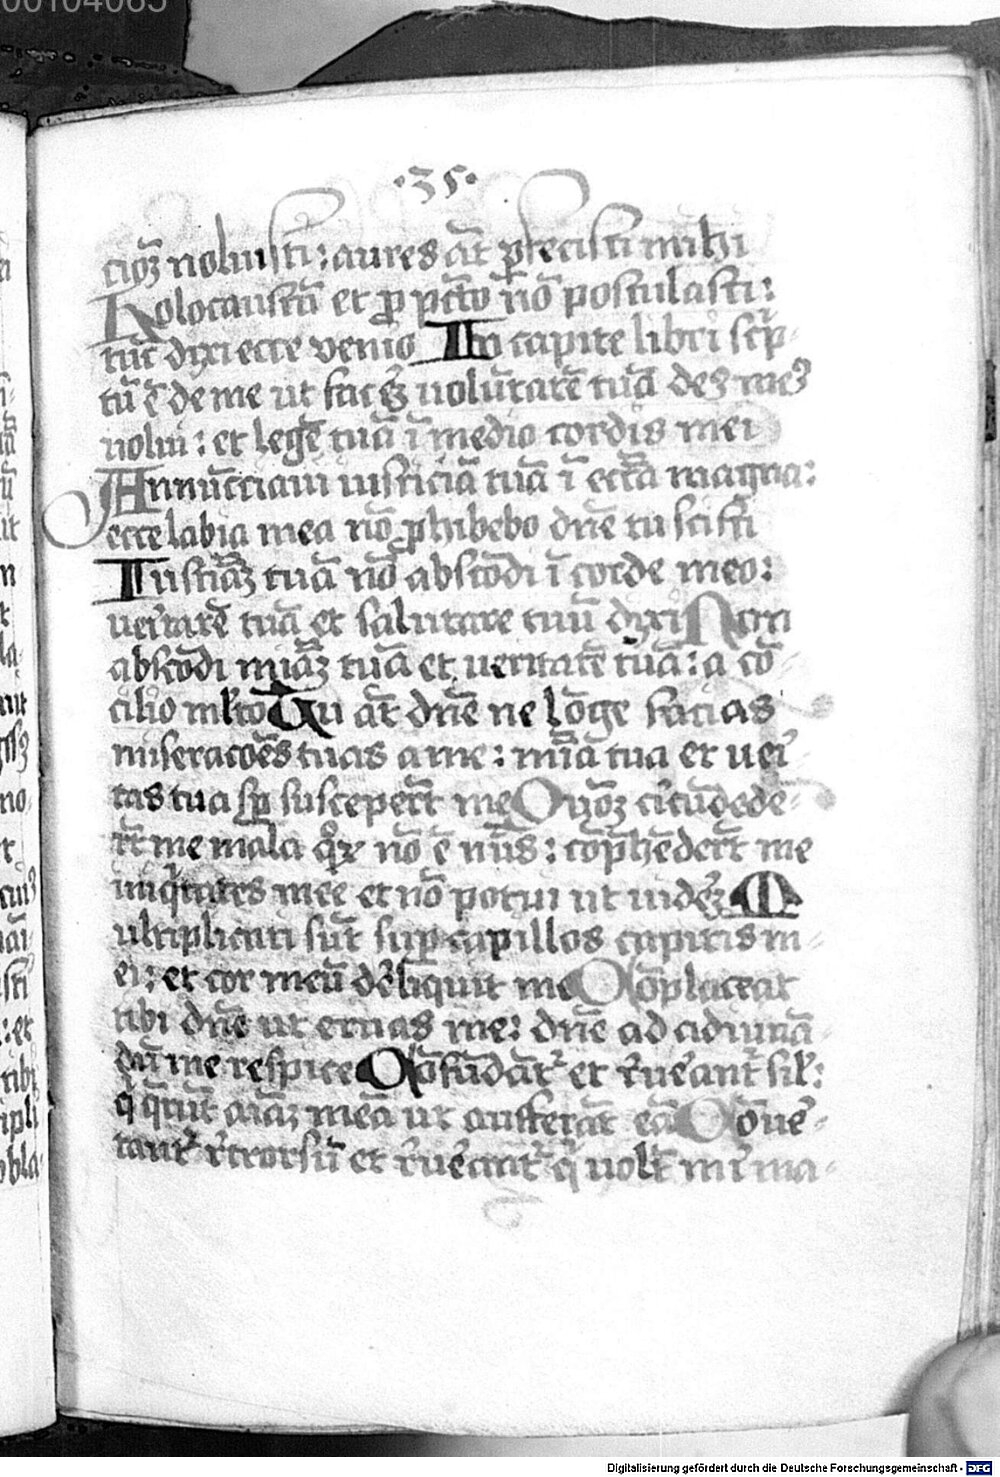 00104065
·35·
cioꝫ noluisti: aures aūt ꝑfecisti mihi
Holocaustū et ꝓ pctō nō postulasti:
tūc dixi ecce venio In capite libri sc̄p-
tū ē de me ut facꝫ uolūtatē tuā deꝰ meꝰ
uolui: et legē tuā ī medio cordis mei
Annūcciaui iusticiā tuā ī ecctā magna:
ecce labia mea nō ꝓhibebo dn̄e tu scisti
Iusticiāꝫ tuā nō abscōdi ī corde meo:
ueritatē tuā et salutare tuū dixi Non
abscōdi miāꝫ tuā et ueritatē tuā: a cō-
cilio mlto Tu āt dn̄e ne lōge facias
miseracōes tuas a me: mīa tua et ueri-
tas tua sꝑ susceperūt me Qm̄ cicūdede-
rūt me mala qꝝ nō ē nūs: cōphēderūt me
iniqtates mee et nō potui ut uiderꝫ M
ultiplicati sūt suꝑ capillos capitis m-
ei: et cor meū dereliquit me Cōplaceat
tibi dn̄e ut eruas me: dn̄e ad adiuuā-
dū me respice Cōfūdāt et reueant sil:
q qrūt aīaꝫ meā ut aufferāt eā Cōue-
tant retrorsū et reueant q uolt mi ma-
Digitalisierung gefördert durch die Deutsche Forschungsgemeinschaft - DFG